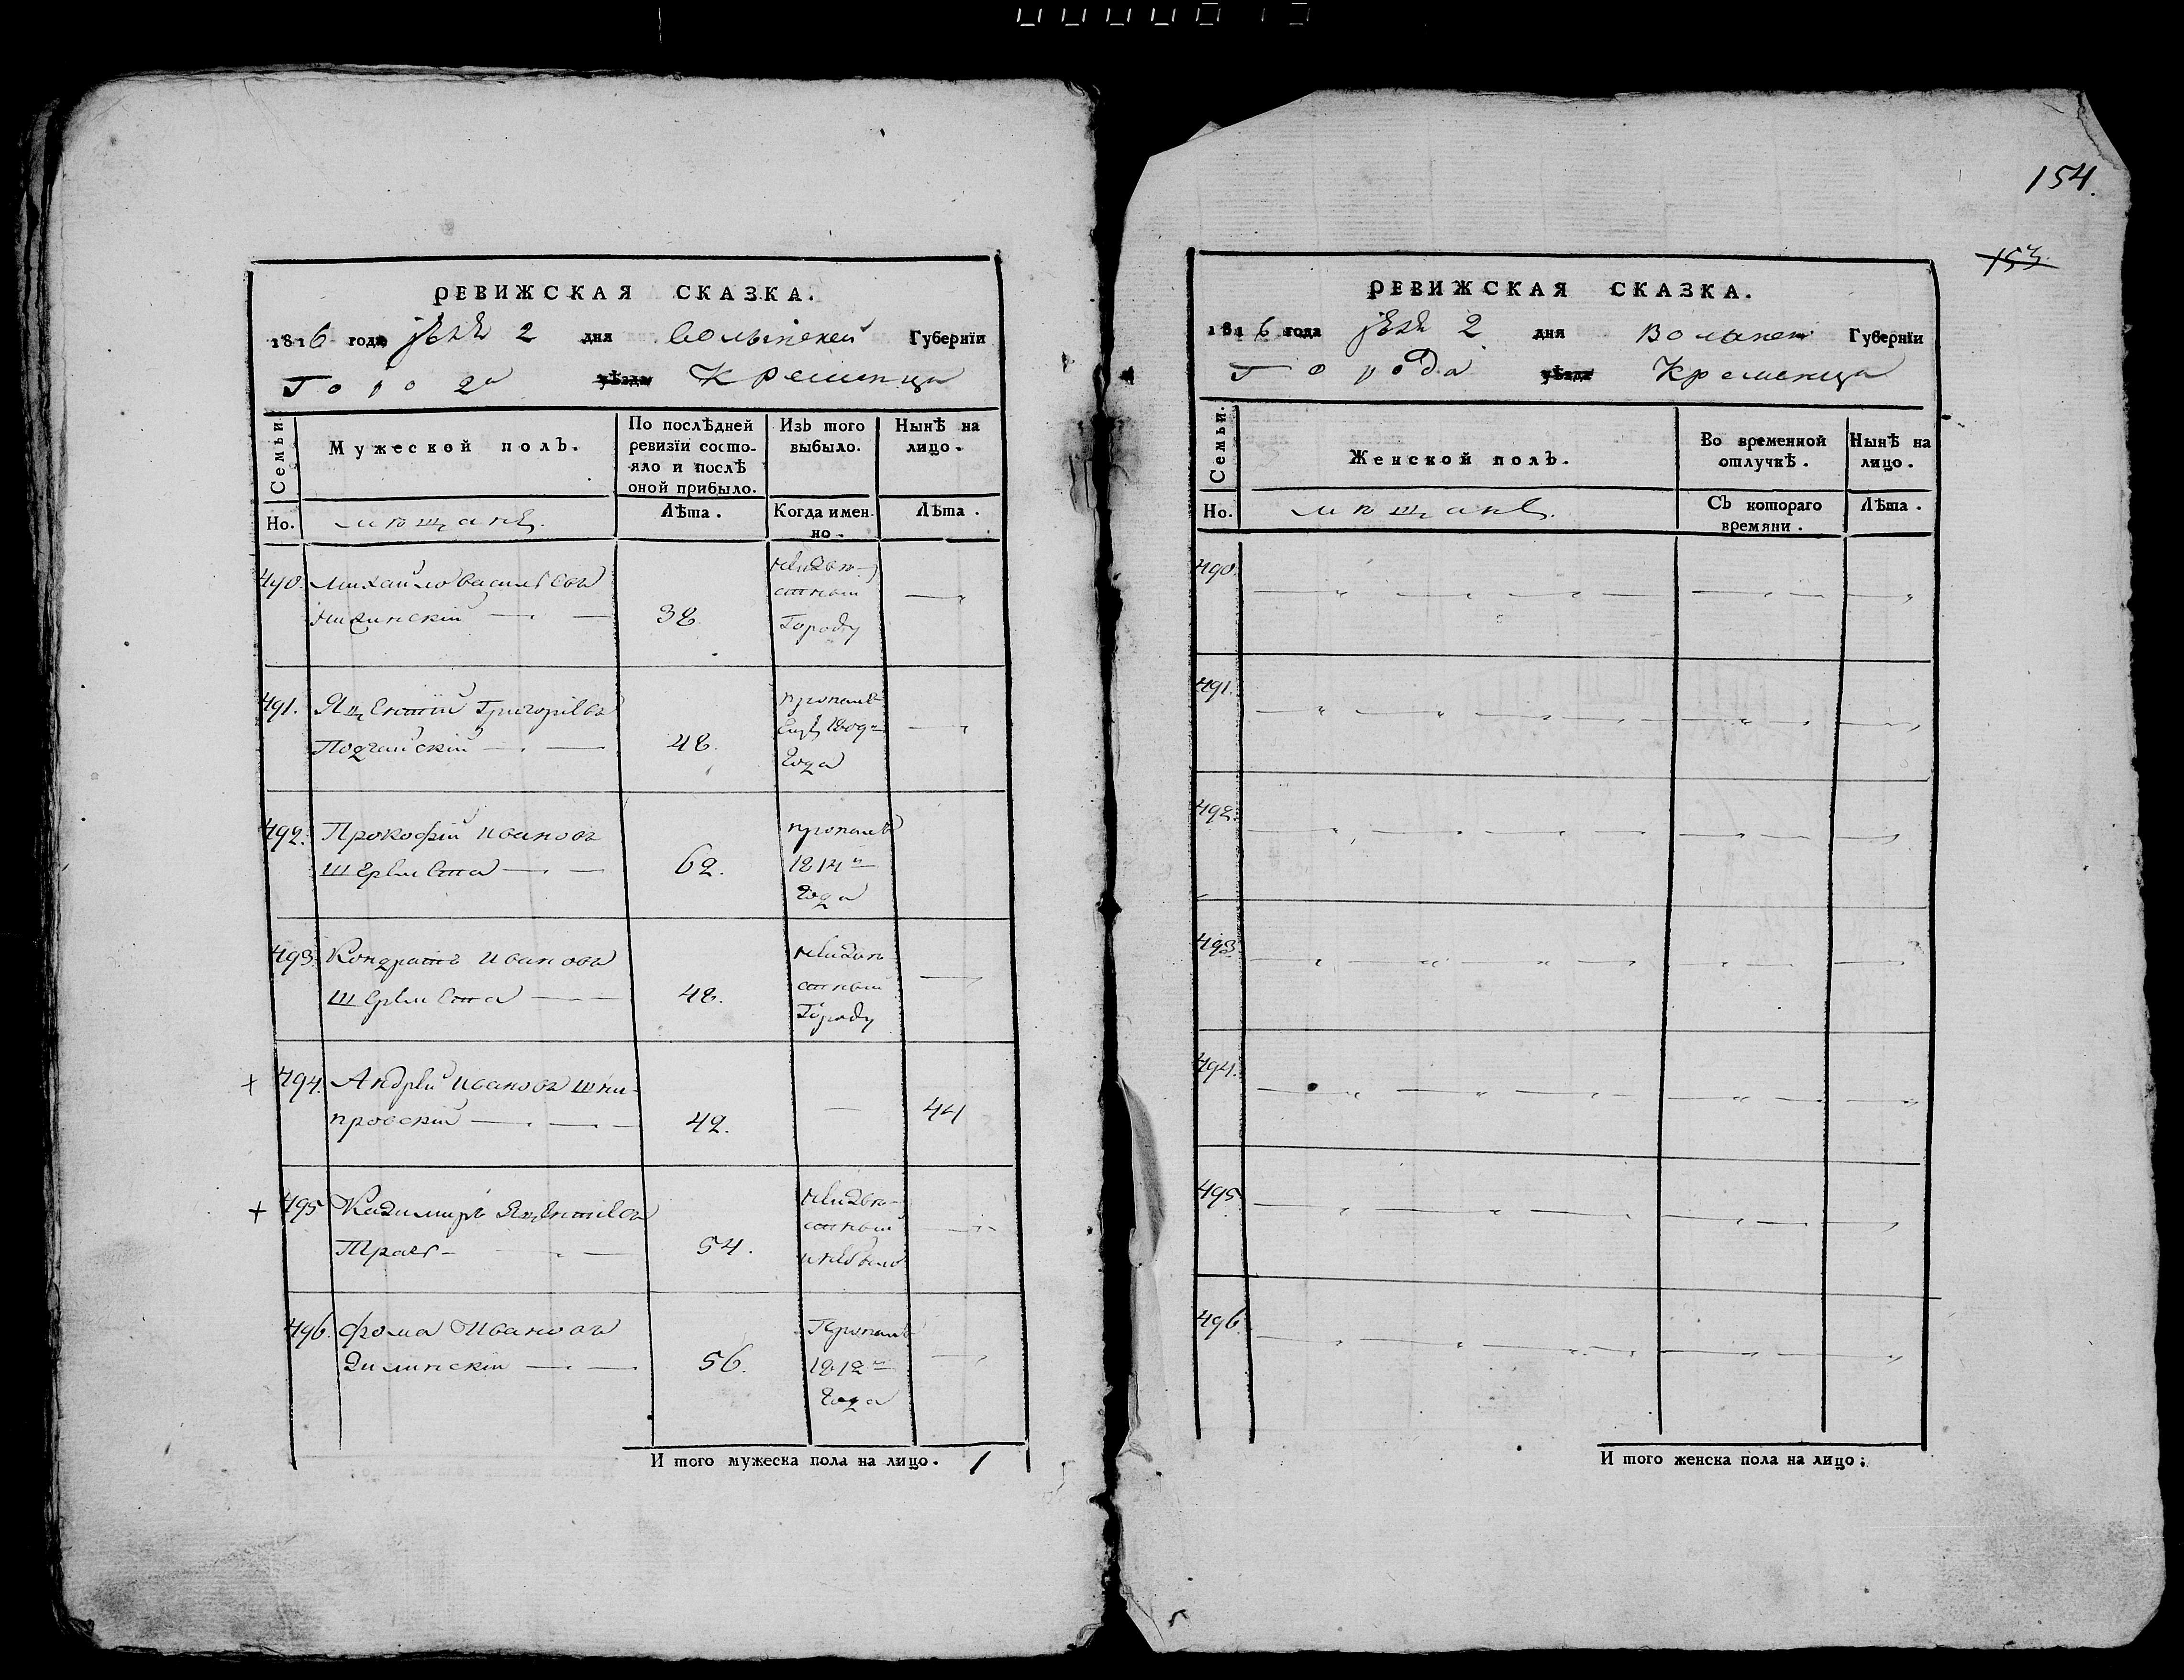 154.
153.
РЕВИЖСКАЯ СКАЗКА.
1816 года 2 дня Волынской Губернїи
Города уѣзда Кременца
Семьи.
Мужеской полъ.
По послѣдней ревизїи состо-
яло и послѣ
оной прибыло.
Изъ того
выбыло.
Нынѣ на
лицо.
Но.
мещане
Лѣта.
Когда имен-
но.
Лѣта.
490. Михайло Васильевъ
38.
неизвѣ-
стный
Городу
491. Яцентий Григорїевъ
Подгайскїй
48.
пропалъ
еще 1809
года
492. Прокофїй Ивановъ
Шермета
62.
пропалъ
1814
года
493. Кондратъ Ивановъ
Шермета
48.
неизвѣ-
стный
Городу
+ 494. Андрей Ивановъ Шни-
провскїй
42.
44
+ 495 Казимиръ Яцентїевъ
54.
неизвѣ-
стный
496. Фома Ивановъ
Зилинскїй
56.
Пропалъ
1812
года
И того мужеска пола на лицо. 1
РЕВИЖСКАЯ СКАЗКА.
1816 года 2 дня Волынской Губернїи
Города уѣзда Кременца
Семьи.
Женской полъ.
Во временной
отлучкѣ.
Нынѣ на
лицо.
Но.
мещане
Съ котораго
времяни.
Лѣта.
490.
491.
492.
493.
494.
495
496.
И того женска пола на лицо: